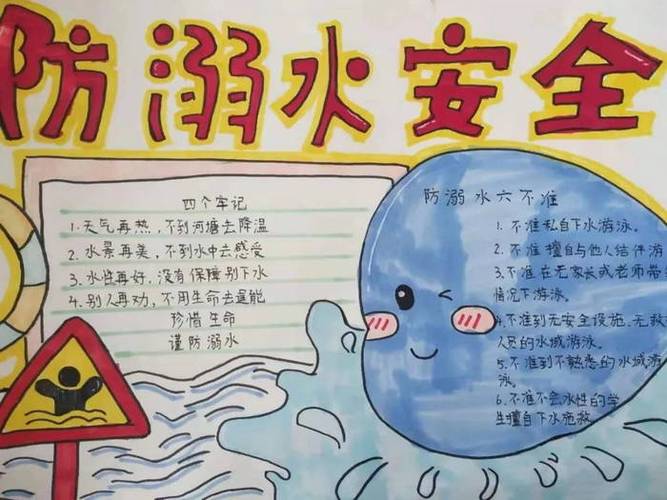 防溺水安全
四个牢记
1.天气再热,不到河塘去降温
2.水景再美,不到水中去感受
3.水性再好,没有保障别下水
4.别人再劝,不用生命去逞能
珍惜生命
谨防溺水
防溺水六不准
1.不准私自下水游泳。
2.不准擅自与他人结伴游
3.不准在无家长或老师带
情况下游泳。
4.不准到无安全设施、无救
人员的水域游泳。
5.不准到不熟悉的水域游
泳。
6.不准不会水性的学
生擅自下水施救